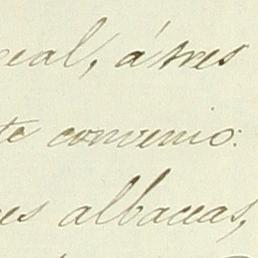 real, á tres
te convenio:
es albaceas,